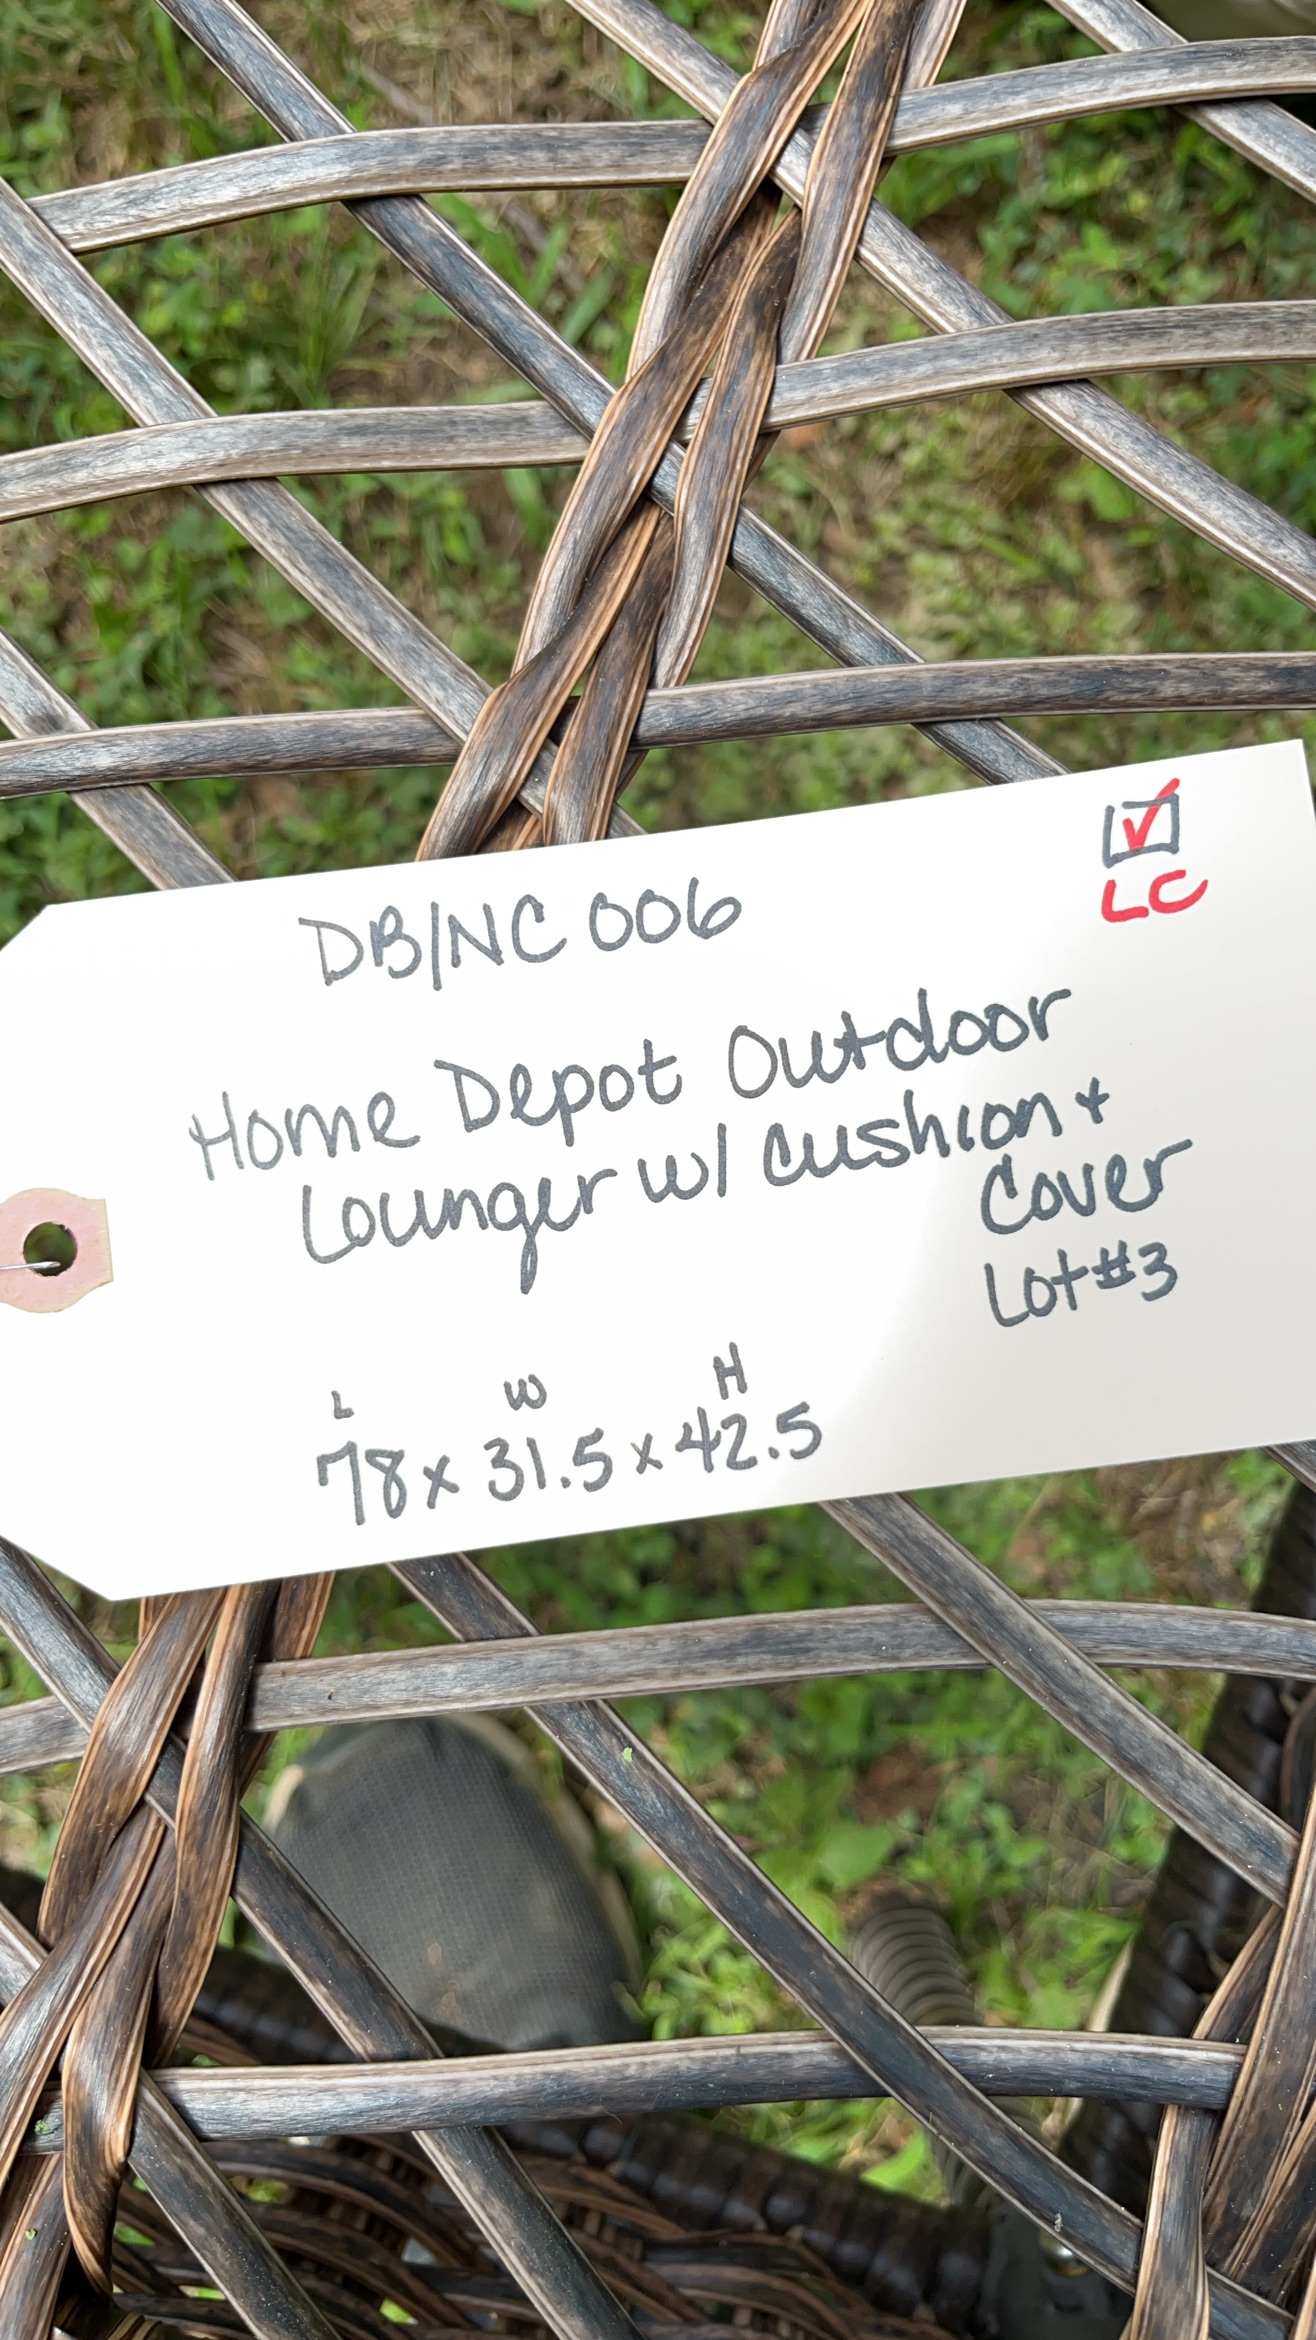 ☑
LC
DB/NC 006
Home Depot Outdoor
Lounger w/ Cushion +
Cover
Lot #3
L W H
78 x 31.5 x 42.5